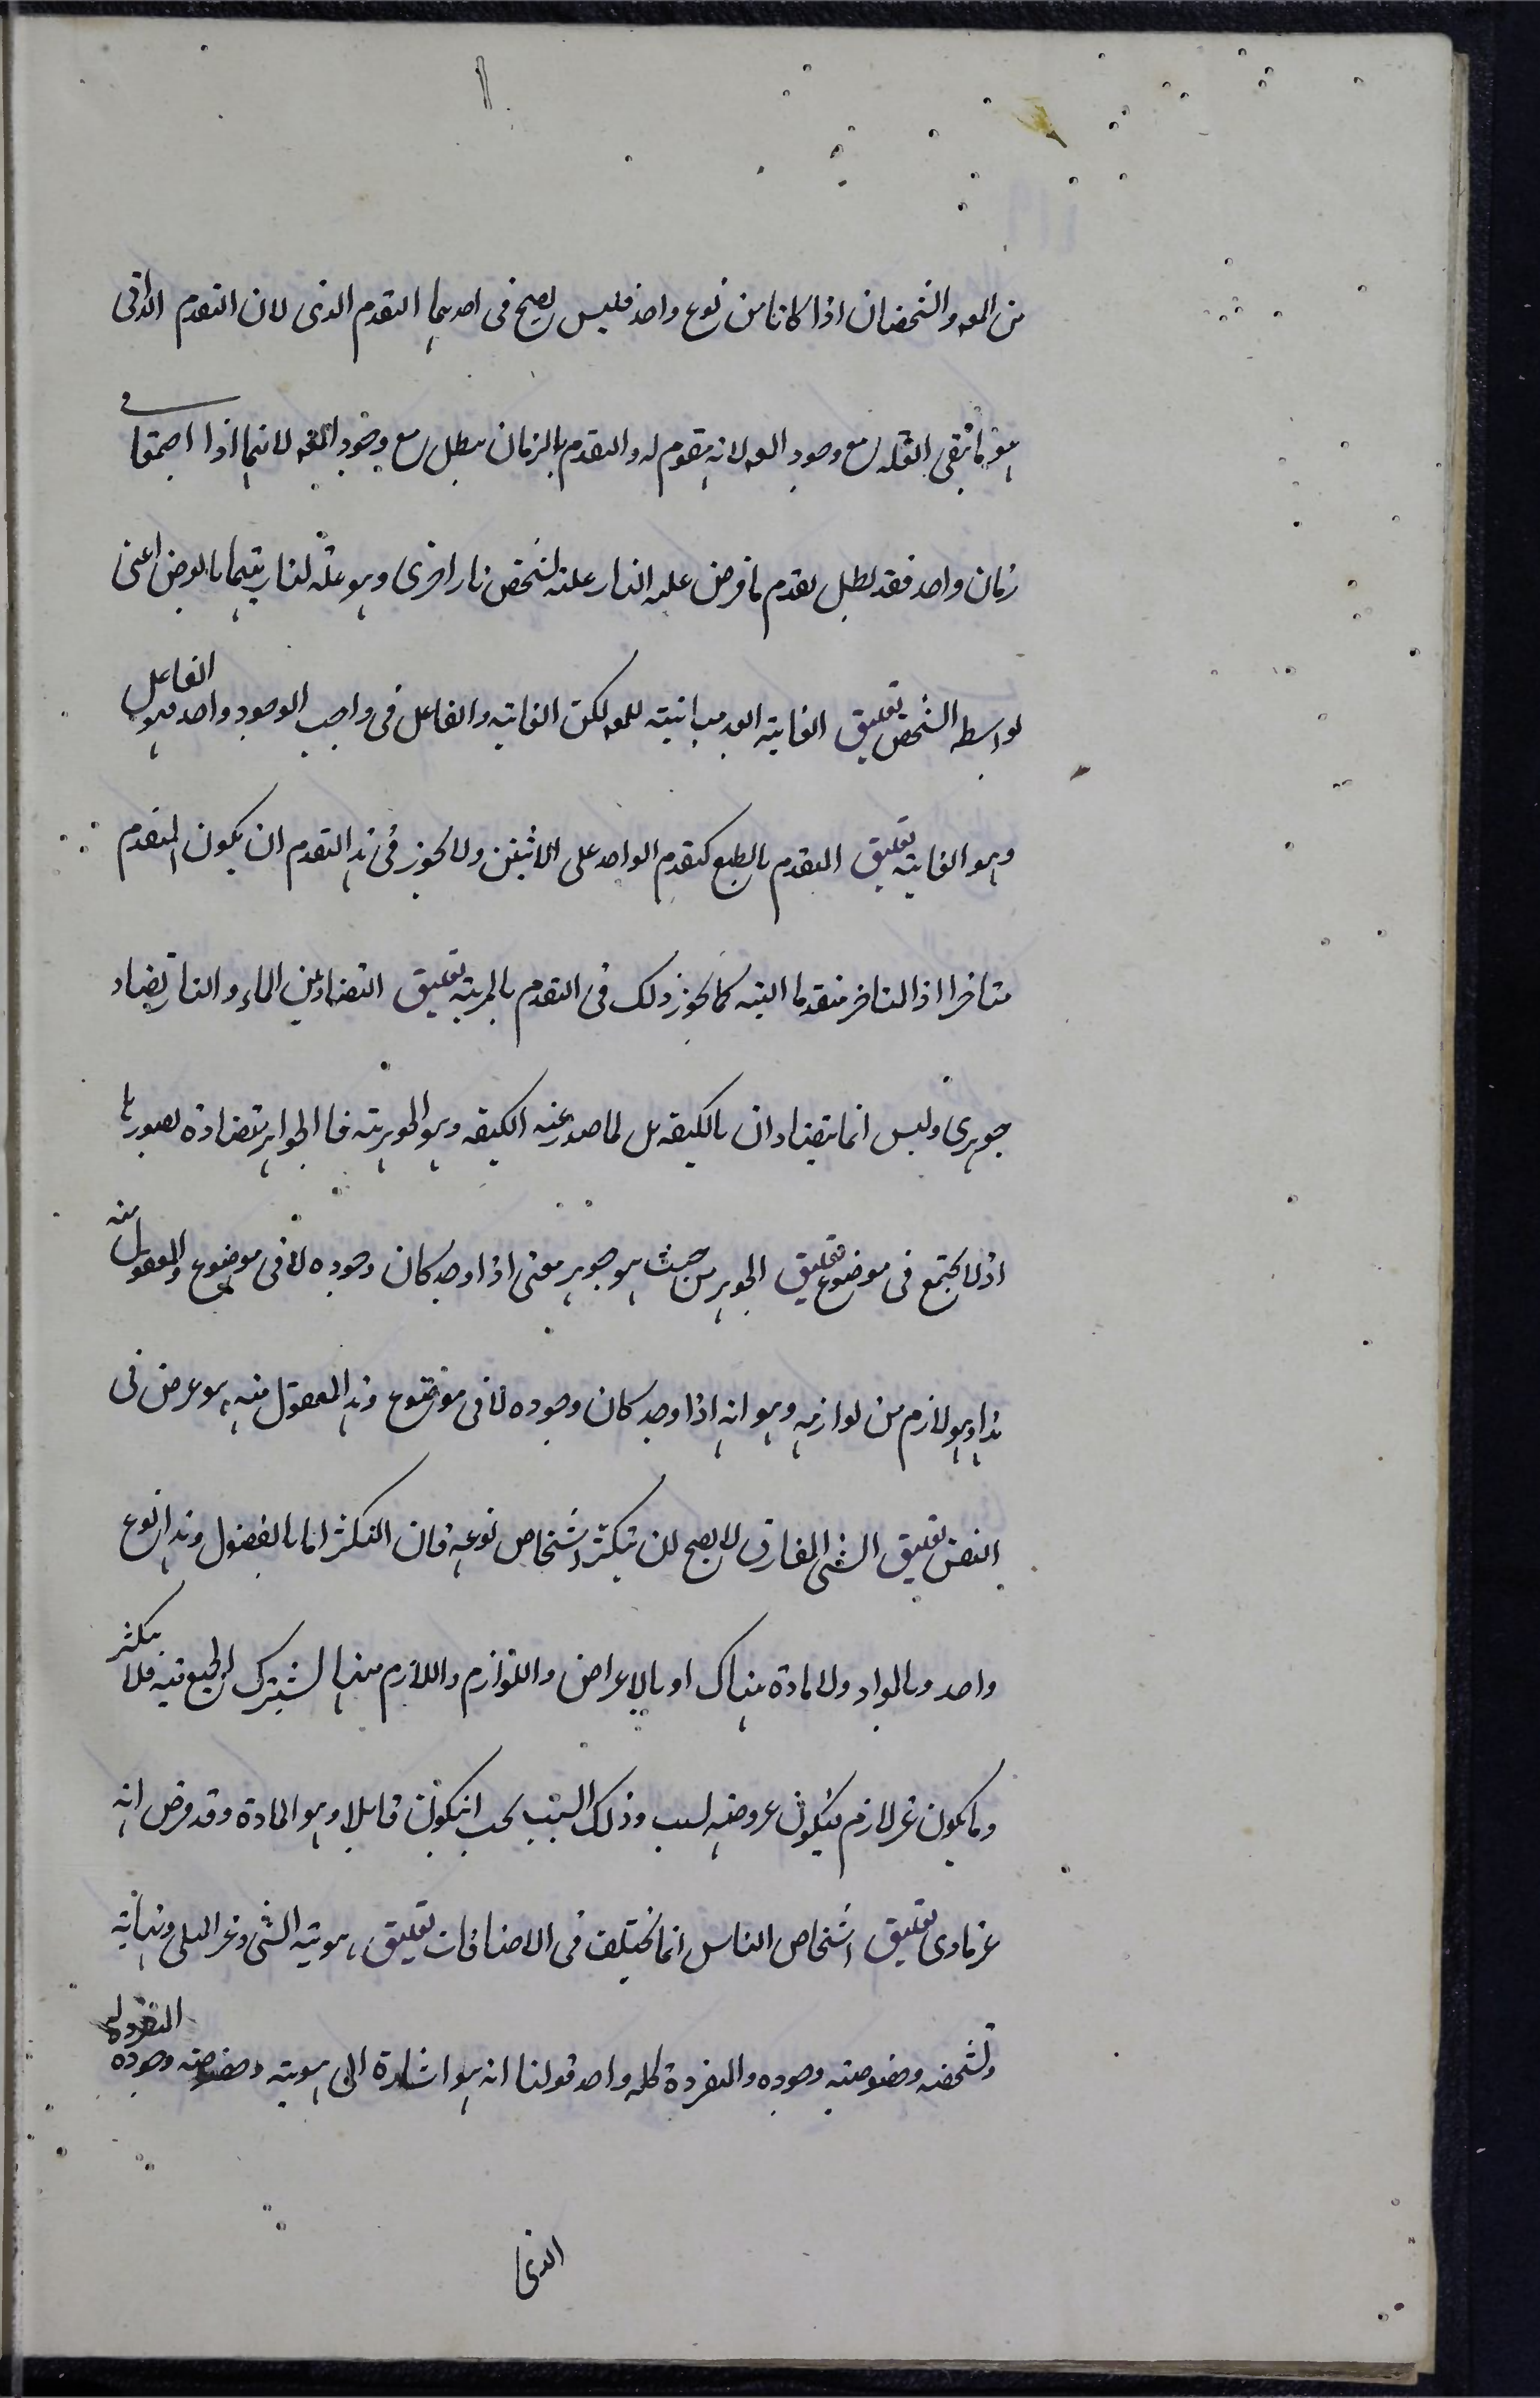 من المعه والشخصان اذا كانا من نوع واحد فليس يصح فى احدهما التقدم الذى لان التقدم الذاتى
هو ما يبقى العلة مع وجود المعه لانه مقوم له والتقدم بالزمان يبطل مع وجود المعه لانهما اذا اجتمعا فى
زمان واحد فقد بطل تقدم ما فرض علة النار علة لشخص نار اخرى وهو علة لنار يتهما بالعرض اعنى
لواسطه الشخص تعليق الغاية العد مباينة للمعه لكن الغاية والفاعل فى واجب الوجود واحد فهو الفاعل
وهو الغاية تعليق التقدم بالطبع كتقدم الواحد على الاثنين ولا يجوز فى هذا التقدم ان يكون المتقدم
متاخرا اذ المتاخر متقدما البته كما يجوز ذلك فى التقدم بالمرتبه تعليق التضاد بين الماء والنار تضاد
جوهرى وليس انما يتضادان بالكيفه بل لما صدر عنه الكيفه وهو الجوهرية فاالجواهر متضادة بصورها
اذ لا يجتمع فى موضوع تعليق الجوهر من حيث هو جوهر معنى اذا وجد كان وجوده لا فى موضوع والمعقول منه
هذا وهو لازم من لوازمه وهو انه اذا وجد كان وجوده لا فى موضوع وهذا المعقول منه هو عرض فى
النفس تعليق الشى المفارق لا يصح لان يتكثر اشخاص نوعه فان التكثر اما بالفصول وهذا نوع
واحد وبالمواد ولا مادة هناك او بالاعراض واللوازم واللازم منها يشترك الجميع فيه فلا يتكثر
وما يكون غر لازم فيكون عروضه لسبب وذلك السبب يجب انيكون قابلا وهو المادة وقد فرض انه
غر مادى تعليق اشخاص الناس انما يختلف فى الاضافات تعليق هوية الشى وعر
وتشخصه وخصوصيته وجوده والمنفردة كله واحد قولنا انه هو اشارة الى هويته وخصوصيته وجوده المنفرد له
الذى